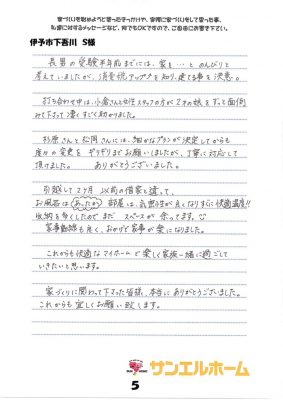 家づくりを始めようと思ったきっかけや、実際に家づくりをして思った事、
私達に対するメッセージなど、何でもOKですので、ご自由にお書き下さい。
伊予市下吾川 S様
長男の受験半年前までには、家を…とのんびりと
考えていましたが、消費税アップを知り、建てる事を決意。
打ち合わせ中は、小倉さんと女性スタッフの方が2才の娘をずっと面倒
みて下さって凄くすごく助かりました。
杉原さんと松岡さんには、細かなプランが決定してからも
度々の変更をギリギリまでお願いしましたが、丁寧に対応して
頂けました。 ありがとうございました。
引越して2ヶ月 以前の借家と違って、
お風呂はあったか 部屋は、気密性が良くなりすごく快適温度!!
収納を多くしたのでまだ スペースが余ってます。
家事動線も良く、おかげで家事が楽になりました。
これからも快適なマイホームで楽しく家族一緒に過ごして
いきたいと思います。
家づくりに関わって下さった皆様、本当にありがとうございました。
これからも宜しくお願い致します。
サンエルホーム
5